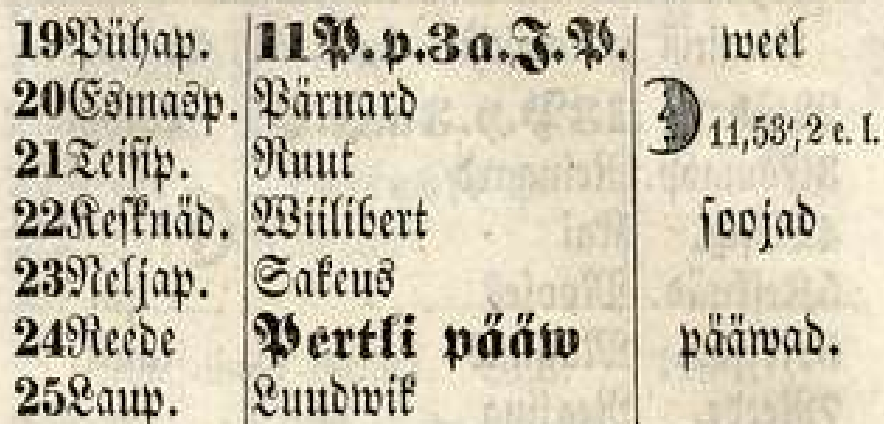 19 Pühap. 11 P. p. 3 a. J. P. weel
20 Esmasp. Pärnard
21 Teisip. Ruut 11,53',2 e. l.
22 Keſknäd. Wiilibert soojad
23 Neljap. Sakeus
24 Reede Pertli pääw pääwad.
25 Laup. Luudwik